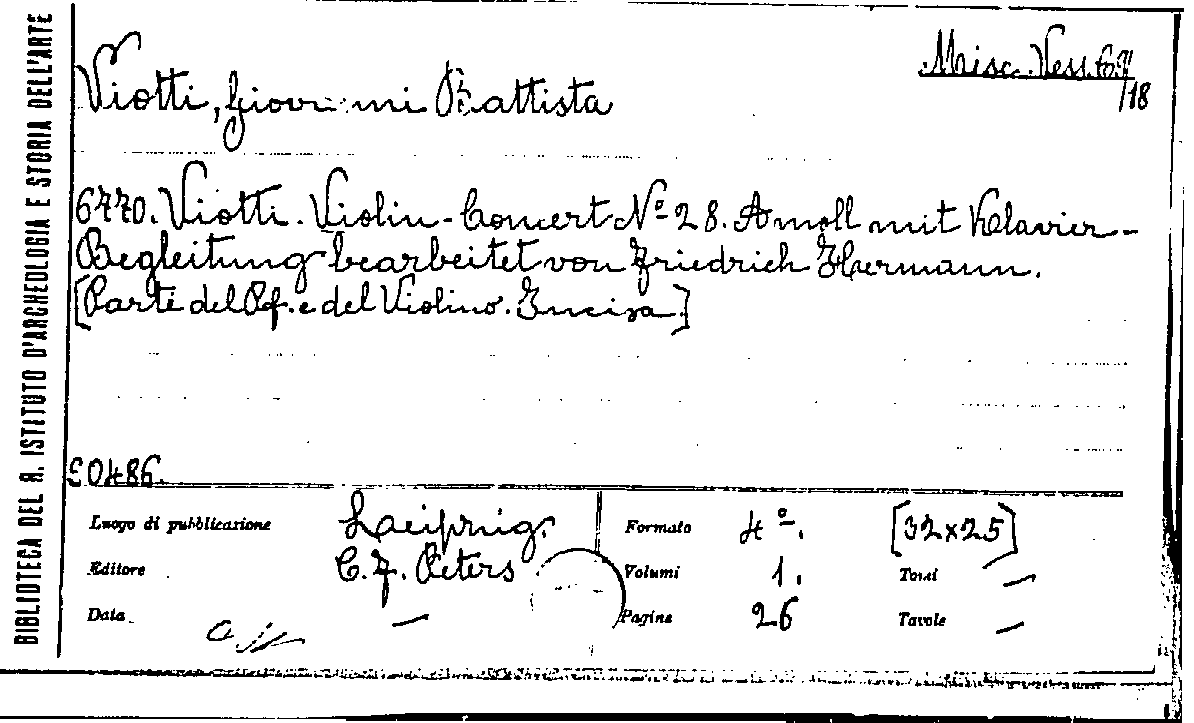 BIBLIOTECA DEL R. ISTITUTO D'ARCHEOLOGIA E STORIA DELL'ARTE
Misc. Vess.
/18
Viotti, Giovanni Battista
6770. Viotti. Violin-Concert Nº 28. A moll mit Klavier-
Begleitung bearbeitet von Friedrich Hermann.
[Parte del Pf. e del Violino. Incisa]
20486.
Luogo di pubblicazione Leipzig.
Formato 4º. [32x25]
Editore C. F. Peters
Volumi 1. Tomi —
Data —
Pagine 26 Tavole —